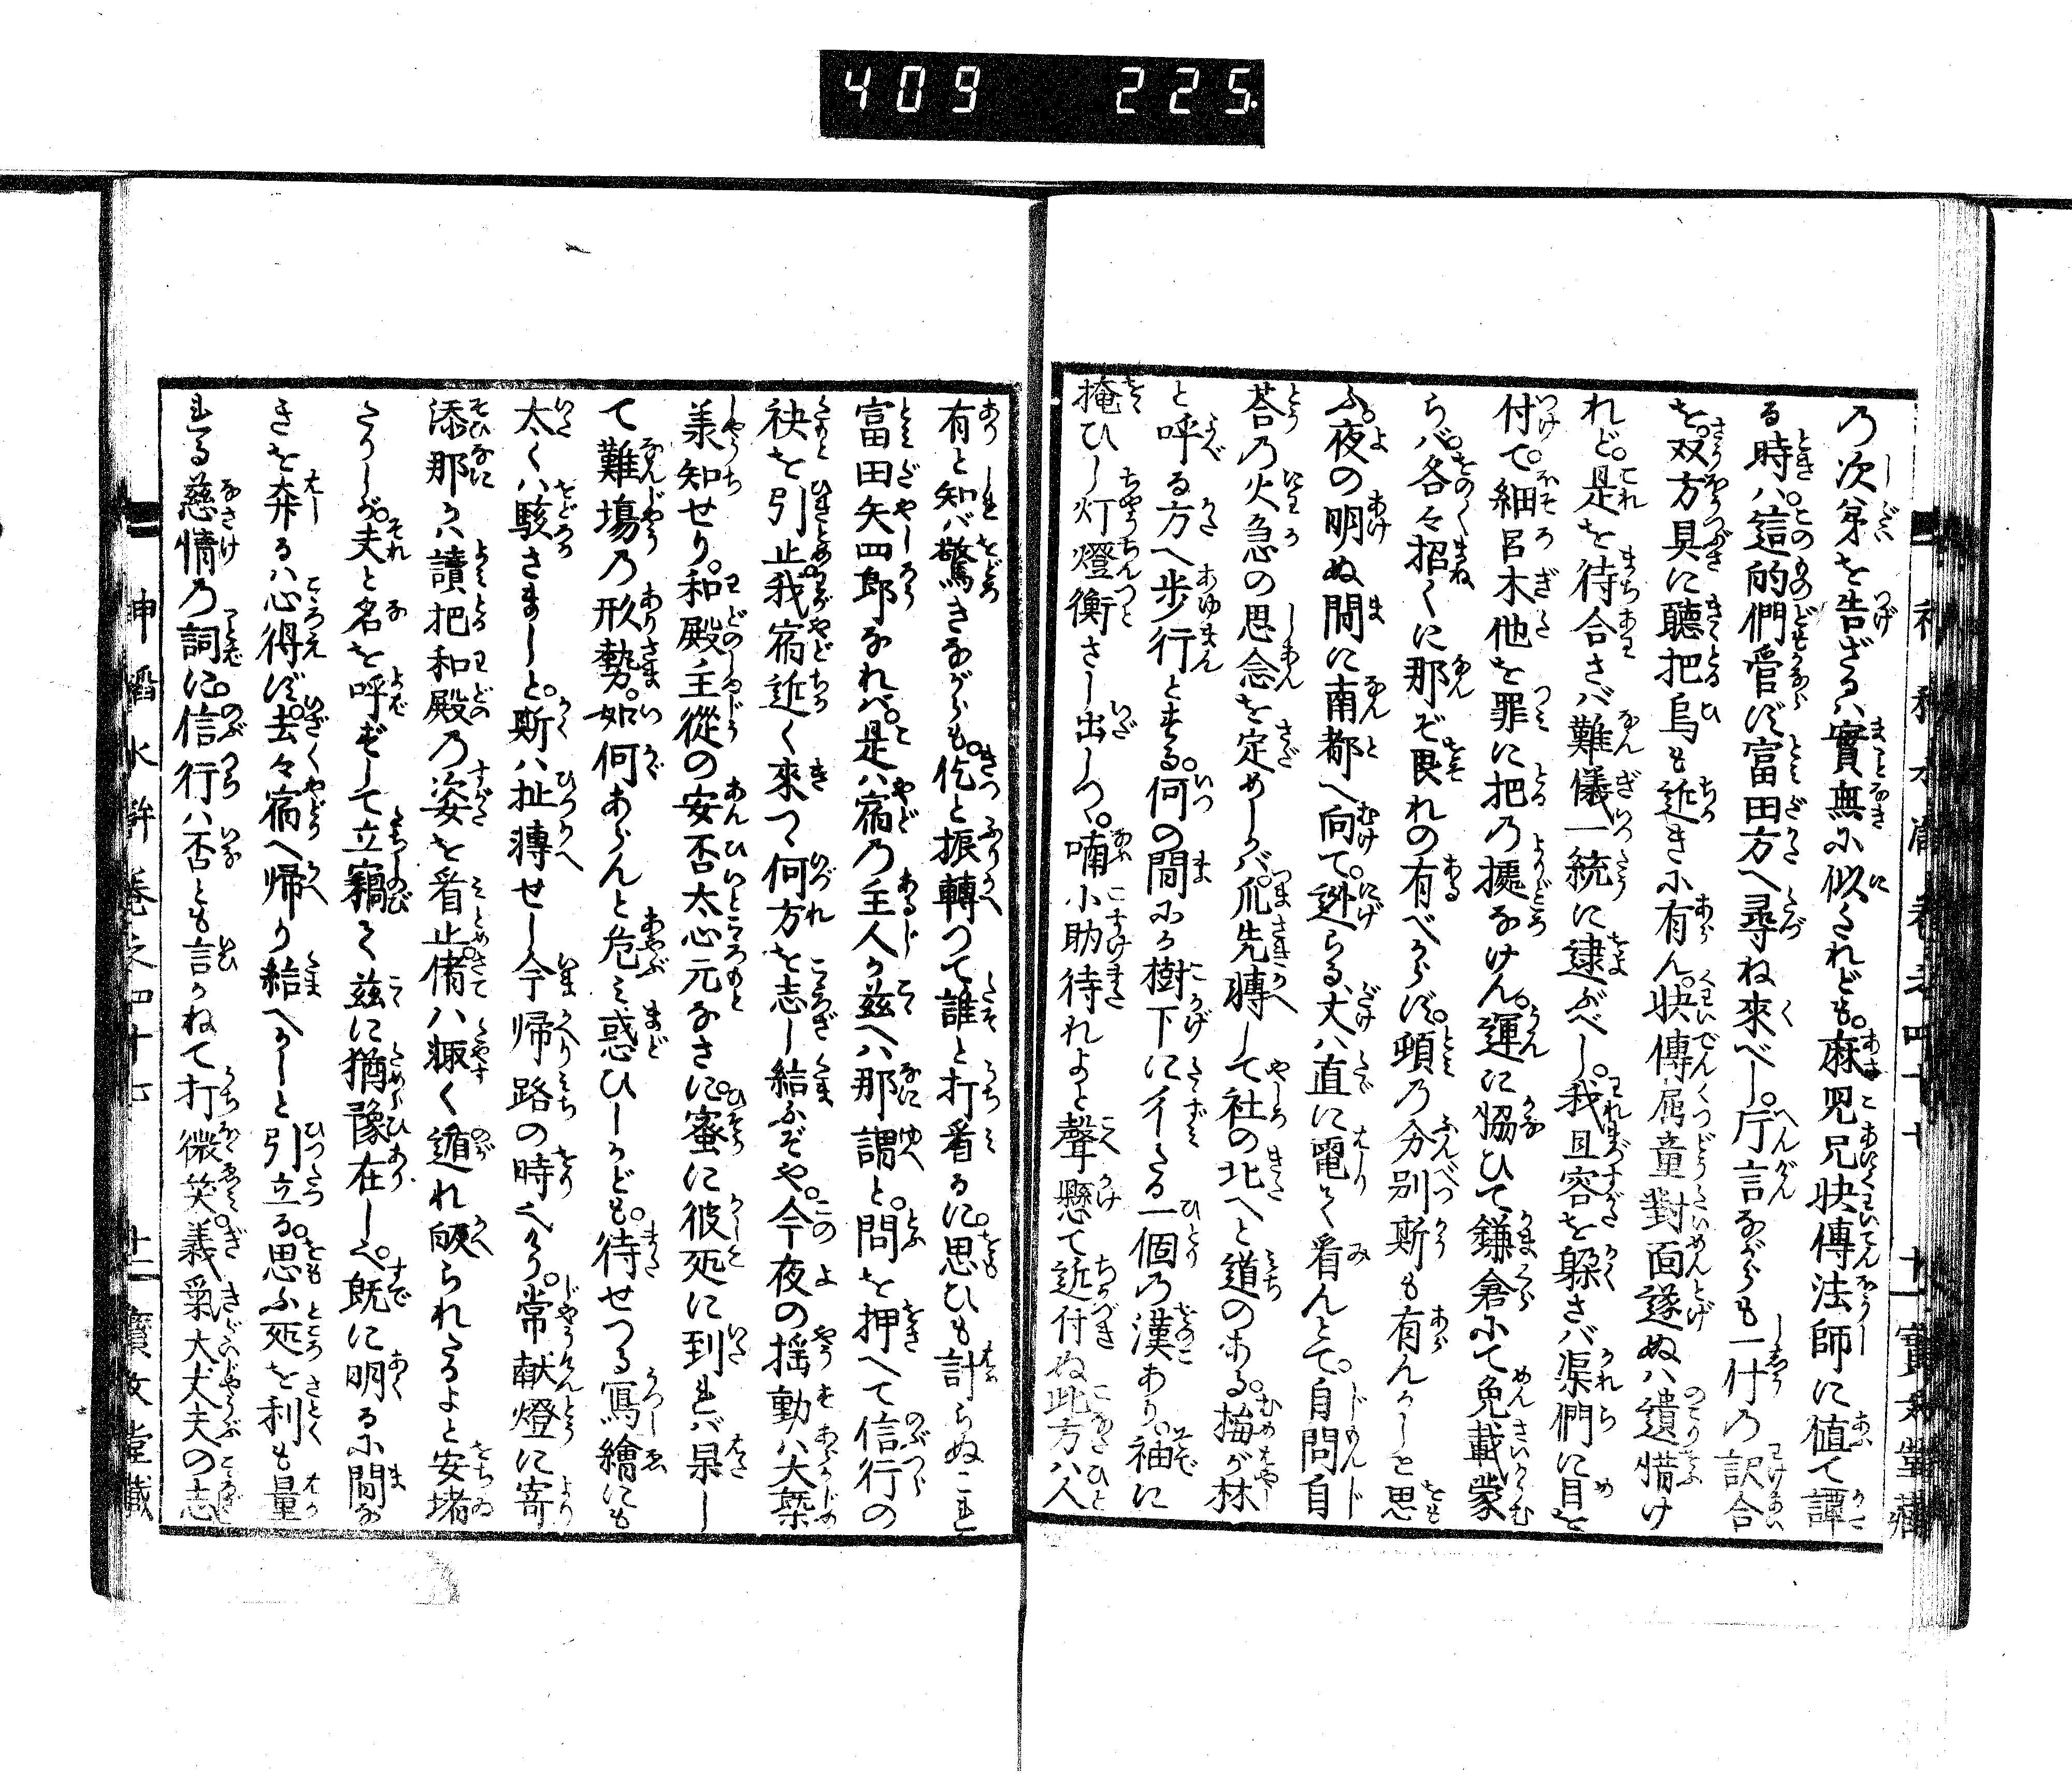 409 225
乃次第を告ざるハ實無に似くれども。麻児兄快傳法師に値て譚
る時ハ。這的們管ず富田方へ尋ね來べし。片言ながらも一什の訳合
を。双方具に聽把烏も近きに有ん。快傳屈童對面遂ぬハ遺惜け
れど。是を待合さバ難儀一統に逮ぶべし。我且容を躱さバ渠們に目を
付て。細呂木他を罪に把の據なけん。運に協ひて鎌倉にて免載蒙
らバ。各々招くに那ぞ畏れの有べからず。頓の分別斯も有んかしと思
ふ。夜の明ぬ間に南都へ向て。迯らるゝ丈ハ直に電て看んとて。自問自
荅の火急の思念を定めしかバ。爪先轉して社の北へと道のある。梅が林
と呼る方へ歩行とする。何の間にか樹下に彳たる一個の漢あり。袖に
掩ひし灯燈衝さし出しつ。喃小助待れよと聲懸て近付ぬ此方ハ人
有と知バ驚きながらも。佶と振轉つて誰と打看るに。思ひも計らぬこれ
富田矢四郎なれバ。是ハ宿の主人か茲へハ那謂と。問を押へて信行の
袂を引止。我宿近く來つ何方を志し結ふぞや。今夜の揺動ハ大槩
羕知せり。和殿主從の安否太心元なさに。蜜に彼処に到れバ果し
て難塲の形勢。如何あらんと危ミ惑ひしかども。待せつる寫繪にも
太くハ駭さましと。斯ハ扯轉せし今帰路の時へり。常献燈に寄
添那かハ讀把和殿の姿を看止。偖ハ輙く遁れ皈られたるよと安堵
たりしが。夫と名を呼ずして立竊て茲に猶豫在しハ。既に明るに間な
きを奔るハ心得ず。去々宿へ帰り給へかしと引立る。思ふ処を利も量
れる慈情の詞に。信行ハ否とも言かねて打微笑。義氣大丈夫の志
神稻水滸 卷之四十七 十二 寳文堂藏